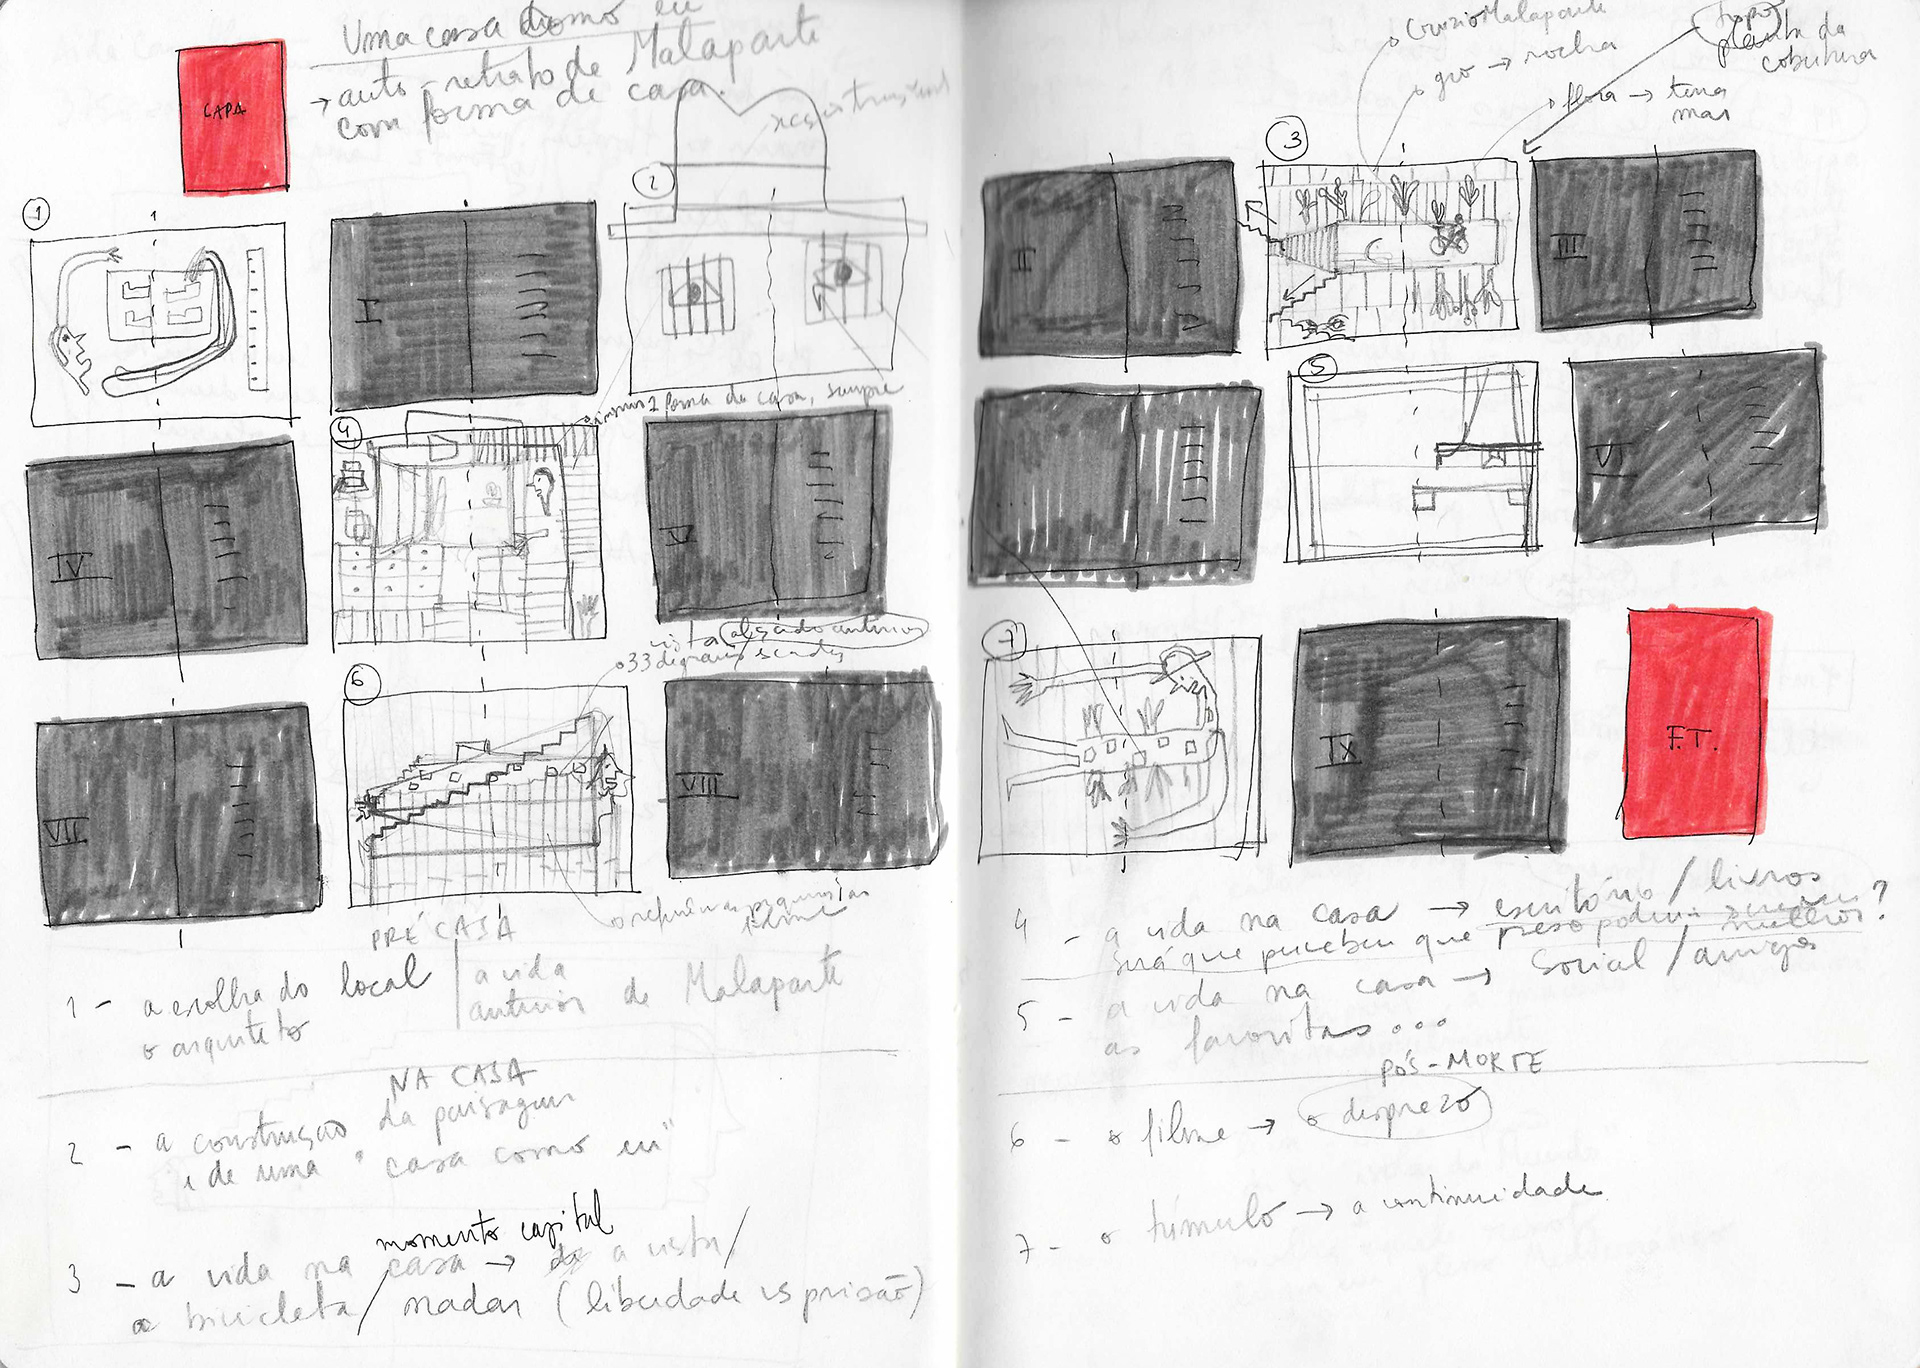 Uma casa como eu
→ auto-retrato de Malaparte
com forma de casa.
CAPA
1
I
2
forma da casa, sempre
IV
4
V
alçado anterior
33 degraus
VII
6
VIII
PRÉ CASA
1 - a escolha do local | a vida
o arquiteto anterior de Malaparte
NA CASA
2 - a construção da paisagem
e de uma "casa como eu"
momento capital
3 - a vida na casa → a vista/
a bicicleta/ nadar (liberdade vs prisão)
Curzio Malaparte
topo
planta da
cobertura
→ rocha
flora → terra
mar
II
3
III
5
VI
7
IX
F.T.
4 - a vida na casa → escritório/livros
será que percebem que preso podem ?
5 - a vida na casa → social/amigos
as favoritas...
PÓS-MORTE
6 - o filme → o desprezo
7 - o túmulo → a continuidade